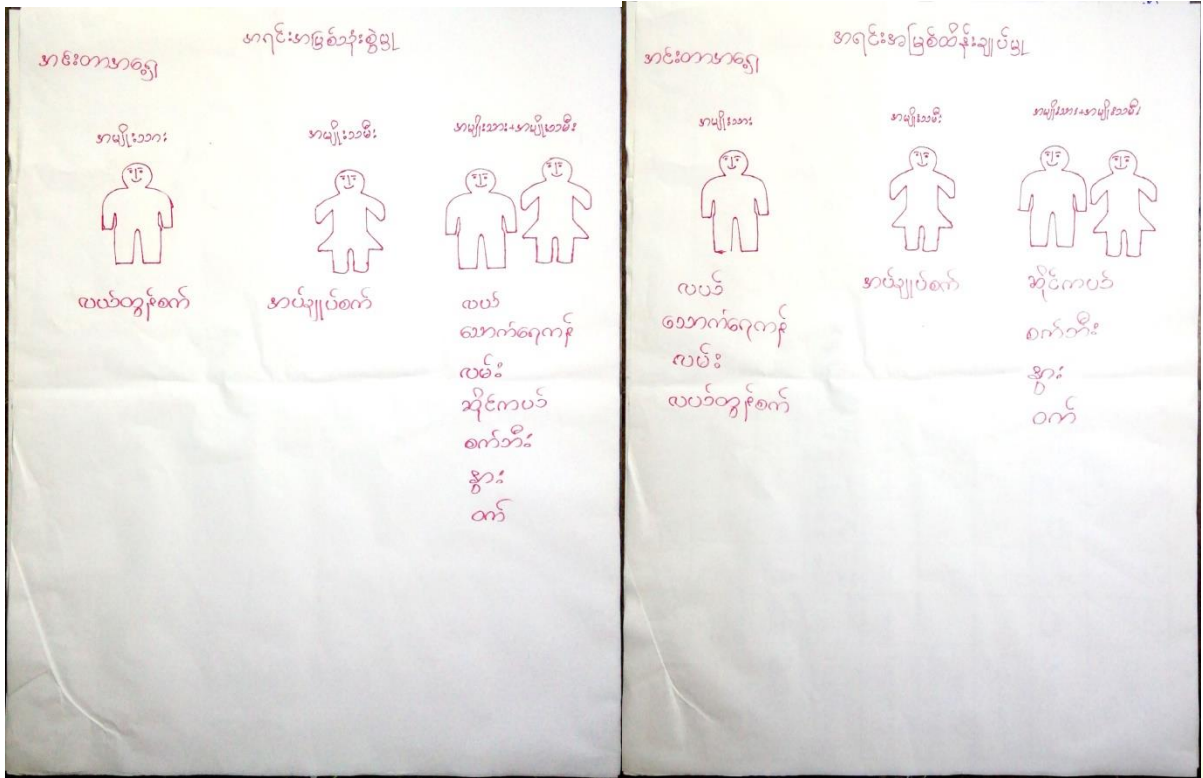 အရင်းအမြစ်သုံးစွဲမှု
အင်းတာအရှေ့
အမျိုးသား
အမျိုးသမီး
အမျိုးသား+အမျိုးသမီး
လယ်ထွန်စက်
အပ်ချုပ်စက်
လယ်
သောက်ရေကန်
လမ်း
ဆိုင်ကယ်
စက်ဘီး
နွား
ဝက်
အရင်းအမြစ်ထိန်းချုပ်မှု
အင်းတာအရှေ့
အမျိုးသား
အမျိုးသမီး
အမျိုးသား+အမျိုးသမီး
လယ်
သောက်ရေကန်
လမ်း
လယ်ထွန်စက်
အပ်ချုပ်စက်
ဆိုင်ကယ်
စက်ဘီး
နွား
ဝက်